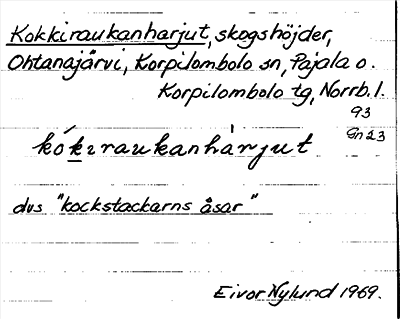 Kokkiraukanharjut, skogshöjder,
Ohtanajärvi, Korpilombolo sn, Pajala o.
Korpilombolo tg, Norrb. l.
93
Gn23
kókıraukanhàrjut
dvs "kockstackarns åsar"
Eivor Nylund 1969.